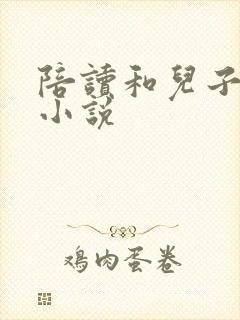 陪讀和兒子
小說
鳮肉蛋卷